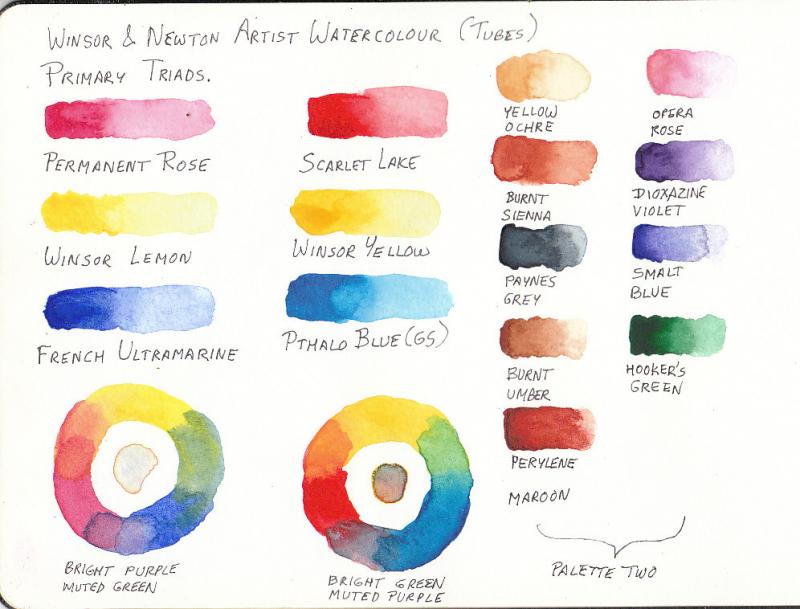 WINSOR & NEWTON ARTIST WATERCOLOUR (TUBES)
PRIMARY TRIADS.
PERMANENT ROSE
WINSOR LEMON
FRENCH ULTRAMARINE
BRIGHT PURPLE
MUTED GREEN
SCARLET LAKE
WINSOR YELLOW
PTHALO BLUE (GS)
BRIGHT GREEN
MUTED PURPLE
YELLOW
OCHRE
BURNT
SIENNA
PAYNES
GREY
BURNT
UMBER
PERYLENE
MAROON
OPERA
ROSE
DIOXAZINE
VIOLET
SMALT
BLUE
HOOKER'S
GREEN
PALETTE TWO